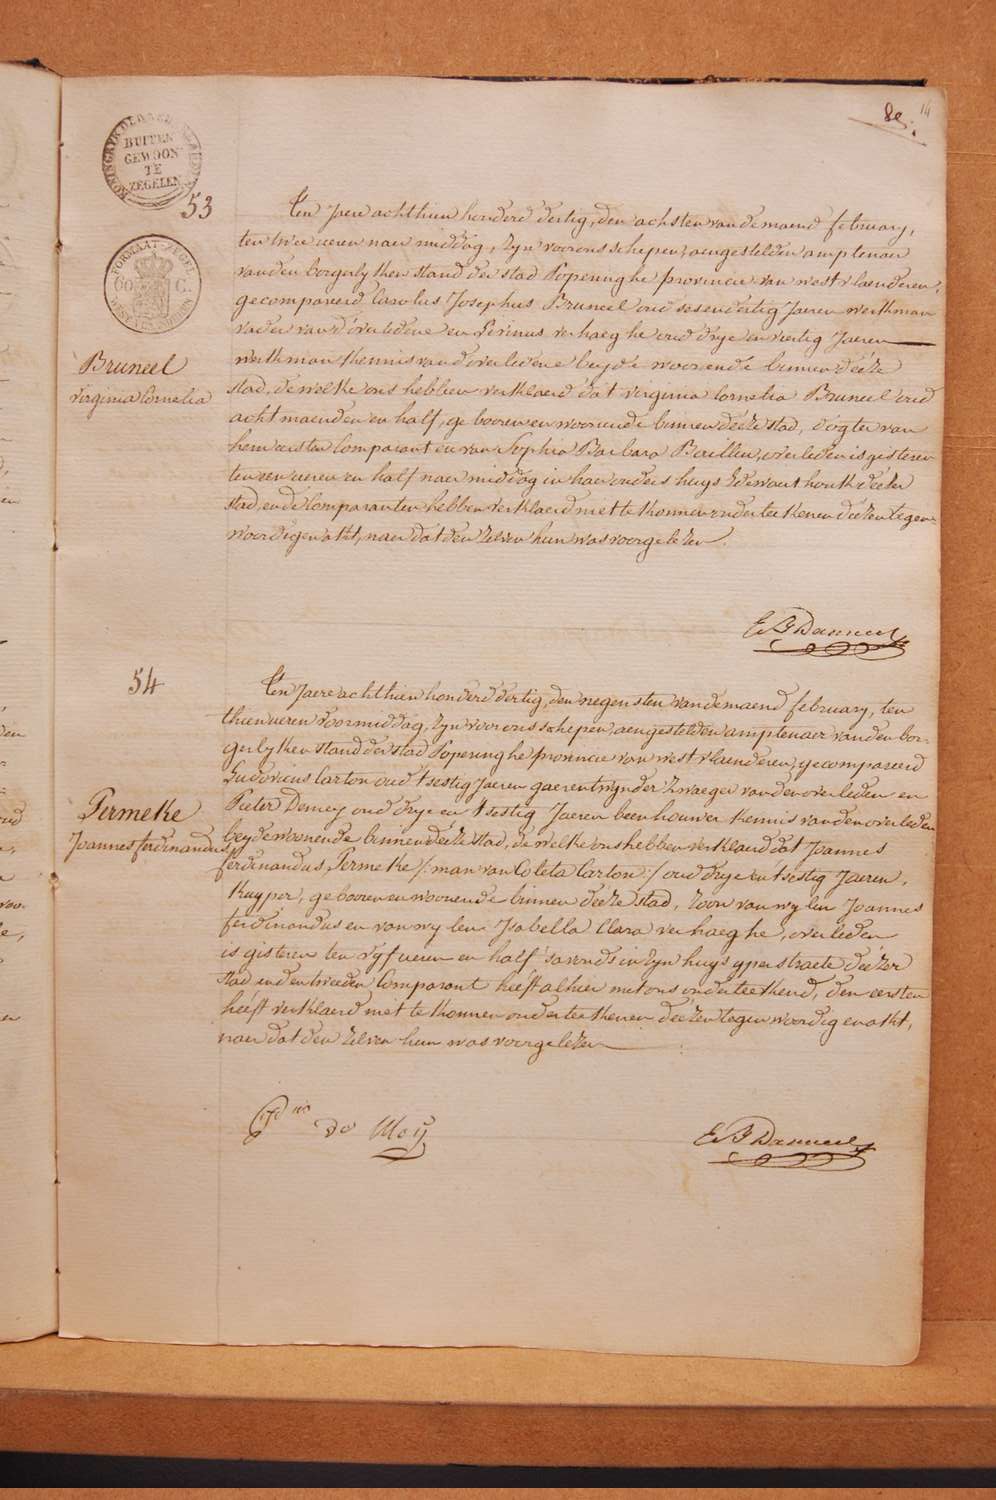 8e.
14
KONINGRYK DER NEDERLANDEN
BUITEN
GEWOON
TE
ZEGELEN
FORMAAT-ZEGEL
60 C.
WEST-VLAENDEREN
53
Bruneel
virginia Cornelia
Ten Jaere achthien honderd dertig, den achsten van de maend february,
ten twee ueren naer middag, zyn voor ons schepen, aengestelden amptenaer
van den borgerlyken stand der stad Poperinghe provincie van westvlaenderen,
gecompareerd Carolus Josephus Bruneel oud sesendertig Jaeren werkman
vader van d'overledene en Livinus verhaeghe oud drye en veertig Jaeren
werkman kennis van d'overledene beyde woonende binnen deeze
stad, de welke ons hebben verklaerd dat virginia Cornelia Bruneel oud
acht maenden en half, gebooren en woonende binnen deeze stad, dogter van
hem eersten Comparant en van Sophia Barbara Baillieu, overleden is gisteren
ten een ueren en half naer middag in haer ouders huys Edewaert houk deezer
stad, en de Comparanten hebben verklaerd niet te konnen onderteekenen deezen tegen-
woordigen akt, naer dat den zelven hun was voorgelezen.
E B Danneel
54
Permeke
Joannes ferdinandus
Ten Jaere achthien honderd dertig, den negensten van de maend february, ten
thien ueren voormiddag, zyn voor ons schepen, aengestelden amptenaer van den bor-
gerlyken stand der stad Poperinghe provincie van westvlaenderen, gecompareerd
Ludovicus Carton oud tsestig Jaeren gaerentwynder zwaeger van den overleden en
Pieter Demey oud drye en tsestig Jaeren beenhouwer kennis van den overleden
beyde woonende binnen deeze stad, de welke ons hebben verklaerd dat Joannes
ferdinandus Permeke /: man van Coleta Carton :/ oud drye en tsestig Jaeren,
kuyper, gebooren en woonende binnen deeze stad, zoon van wylen Joannes
ferdinandus en van wylen Isabella Clara verhaeghe, overleden
is gisteren ten vyf ueren en half s'avonds in zyn huys yperstraete deezer
stad en den tweeden Comparant heeft alhier met ons onderteekend, den eersten
heeft verklaerd niet te konnen onderteekenen deezen tegenwoordigen akt,
naer dat den zelven hun was voorgelezen
de Meij
E B Danneel